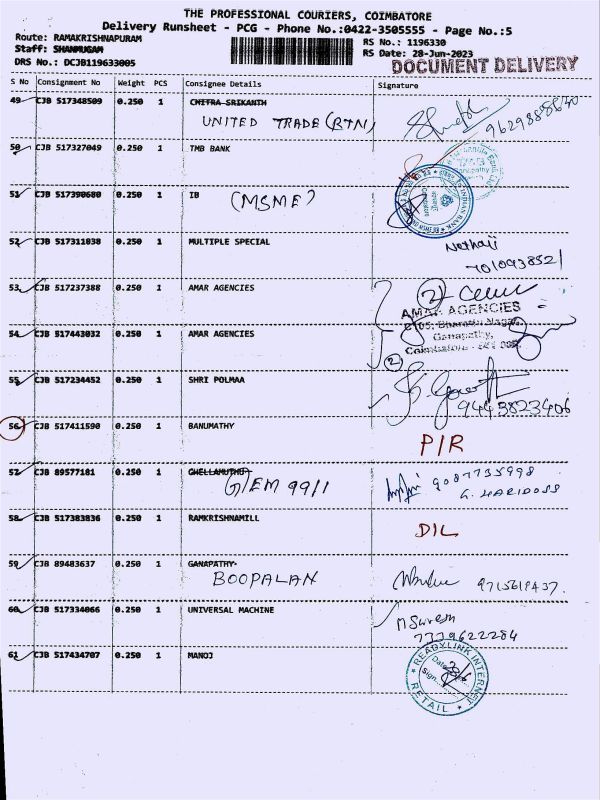 THE PROFESSIONAL COURIERS, COIMBATORE
Delivery Runsheet - PCG - Phone No.:0422-3505555 - Page No.:5
Route: RAMAKRISHNAPURAM
Staff: SHANMUGAM
DRS No.: DCJB119633005
RS No.: 1196330
RS Date: 28-Jun-2023
DOCUMENT DELIVERY
S No Consignment No Weight PCS Consignee Details Signature
49 CJB 517348509 0.250 1 CHITRA SRIKANTH
UNITED TRADE (RTN) 9629888630
50 CJB 517327049 0.250 1 TMB BANK
51 CJB 517390680 0.250 1 IB (MSME)
INDIAN BANK
52 CJB 517311038 0.250 1 MULTIPLE SPECIAL
Nethaji
7010938521
53 CJB 517237388 0.250 1 AMAR AGENCIES
(2)
AMAR AGENCIES
C105, Bharathi Nagar,
Ganapathy,
Coimbatore
54 CJB 517443032 0.250 1 AMAR AGENCIES
(2)
55 CJB 517234452 0.250 1 SHRI POLMAA
9443823406
56 CJB 517411590 0.250 1 BANUMATHY
P/R
57 CJB 89577181 0.250 1 CHELLAMUTHU
GEM 99/1 9087735998
G. HARIDOSS
58 CJB 517383836 0.250 1 RAMKRISHNAMILL
D/L
59 CJB 89483637 0.250 1 GANAPATHY
BOOPALAN 9715619437.
60 CJB 517334066 0.250 1 UNIVERSAL MACHINE
M Suresh
7339622284
61 CJB 517434707 0.250 1 MANOJ
READYLINK INTERNET
Date:
Sign.
RETAIL